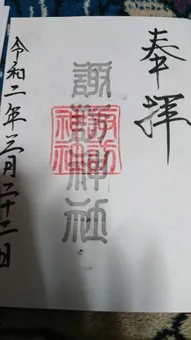 奉拝
諏訪神社
令和二年三月二十二日